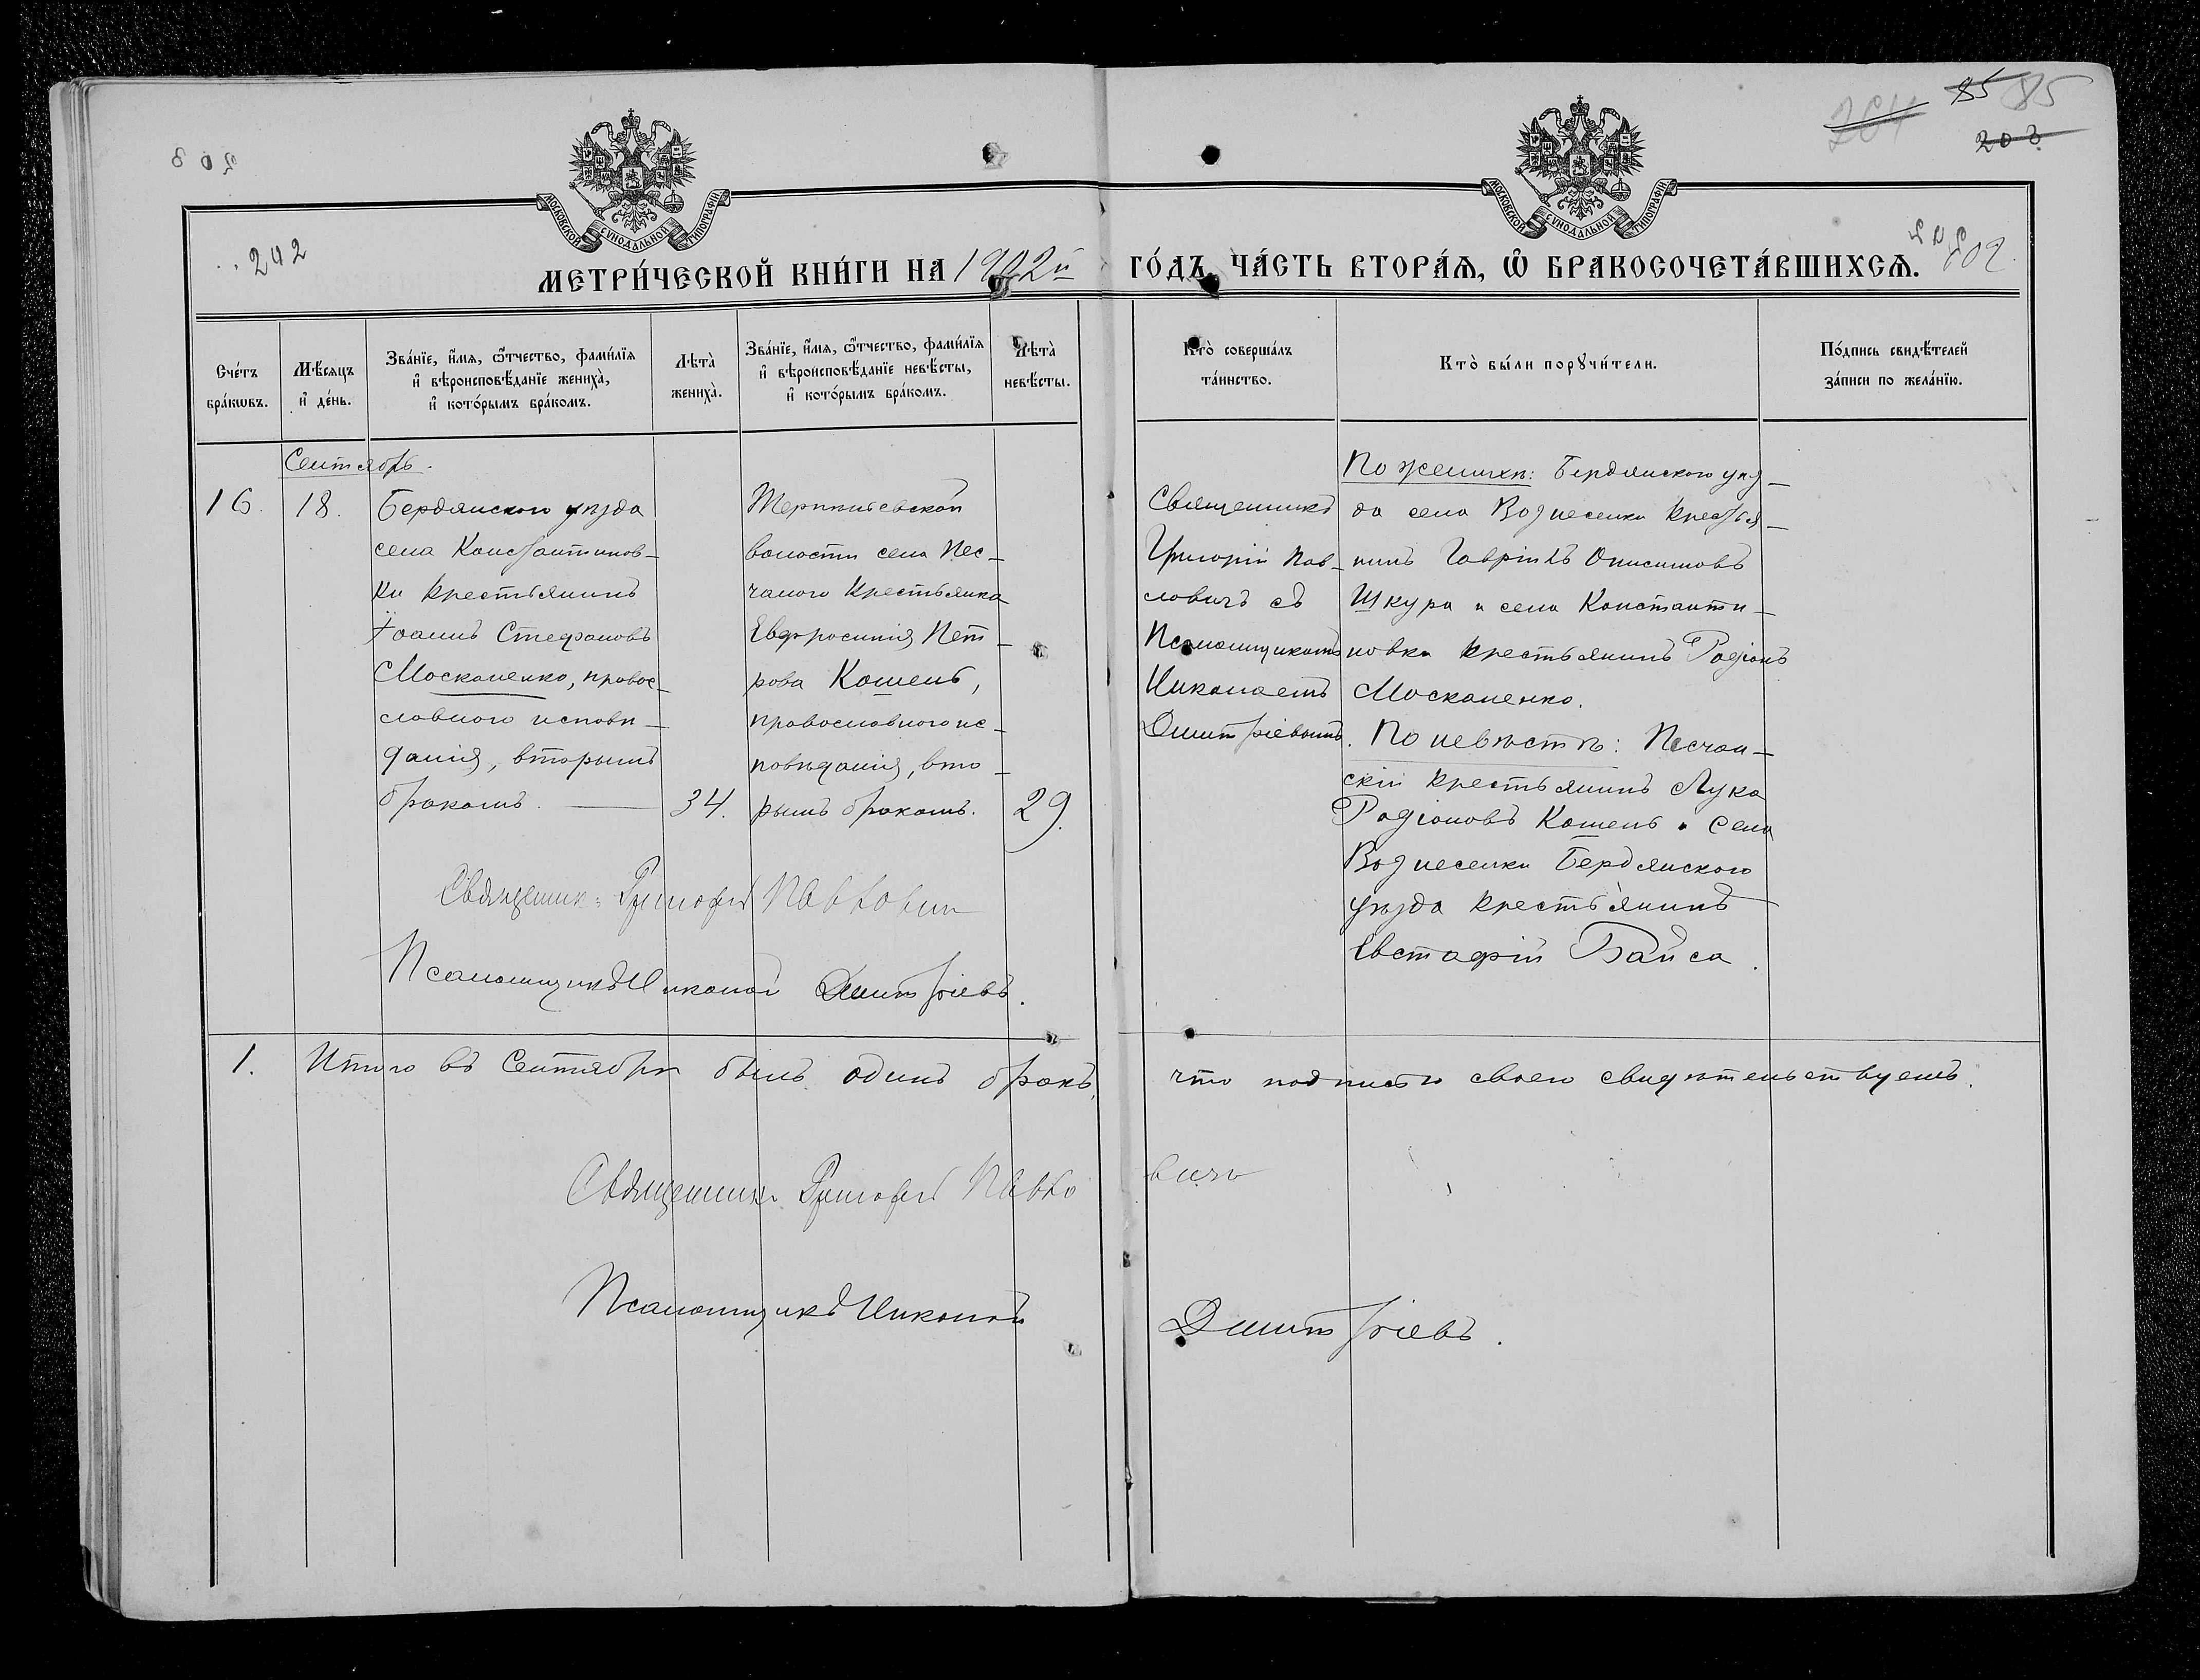 85 85
203
242
МОСКОВСКОЙ СѴНОДАЛЬНОЙ ТИПОГРАФІИ
МОСКОВСКОЙ СѴНОДАЛЬНОЙ ТИПОГРАФІИ
МЕТРИ́ЧЕСКОЙ КНИ́ГИ НА 1902й ГО́ДЪ, ЧА́СТЬ ВТОРА́Ѧ, Ѡ҆ БРАКОСОЧЕТА́ВШИХСѦ.
Сче́тъ бра́кѡвъ.
Мѣ́сяцъ и҆ де́нь.
Зва́нїе, и҆́мѧ, ѻ҆́тчество, фамі́лїѧ
и҆ вѣроисповѣ́данїе женихà,
и҆ кото́рымъ бра́комъ.
Лѣ́та женихà.
Зва́нїе, и҆́мѧ, ѻ҆́тчество, фамі́лїѧ
и҆ вѣроисповѣ́данїе невѣ́сты,
и҆ кото́рымъ бра́комъ.
Лѣ́та невѣ́сты.
Ктò соверша́лъ та́инство.
Ктò бы́ли порꙋчи́тели.
По́дпись свидѣ́телей за́писи по жела́нїю.
Сентябрь.
16.
18.
Бердянскаго уѣзда
села Константинов-
ки крестьянинъ
Іоаннъ Стефановъ
Москаленко, правос-
лавнаго исповѣ-
данія, вторымъ
бракомъ.
34.
Терпѣніевской
волости села Пес-
чанаго крестьянка
Евфросинія Пет-
рова Кошель,
православнаго ис-
повѣданія, вто-
рымъ бракомъ.
29.
Священникъ
Григорій Пав-
ловичъ съ
Псаломщикомъ
Николаемъ
Дмитріевымъ.
По женихѣ: Бердянскаго уѣз-
да села Вознесенки крестья-
нинъ Гавріилъ Онисимовъ
Шкура и села Констаити-
новки крестьянинъ Родіонъ
Москаленко.
По невѣстѣ: Песчан-
скій крестьянинъ Лука
Родіоновъ Кошель и села
Вознесенки Бердянскаго
уѣзда крестьянинъ
Евстафій Байса.
Священникъ Григорій Павловичъ
Псаломщикъ Николай Дмитріевъ.
1. Итого въ Сентябрѣ былъ одинъ бракъ, что подписью своею свидѣтельствуемъ.
Священникъ Григорій Павловичъ
Псаломщикъ Николай Дмитріевъ.